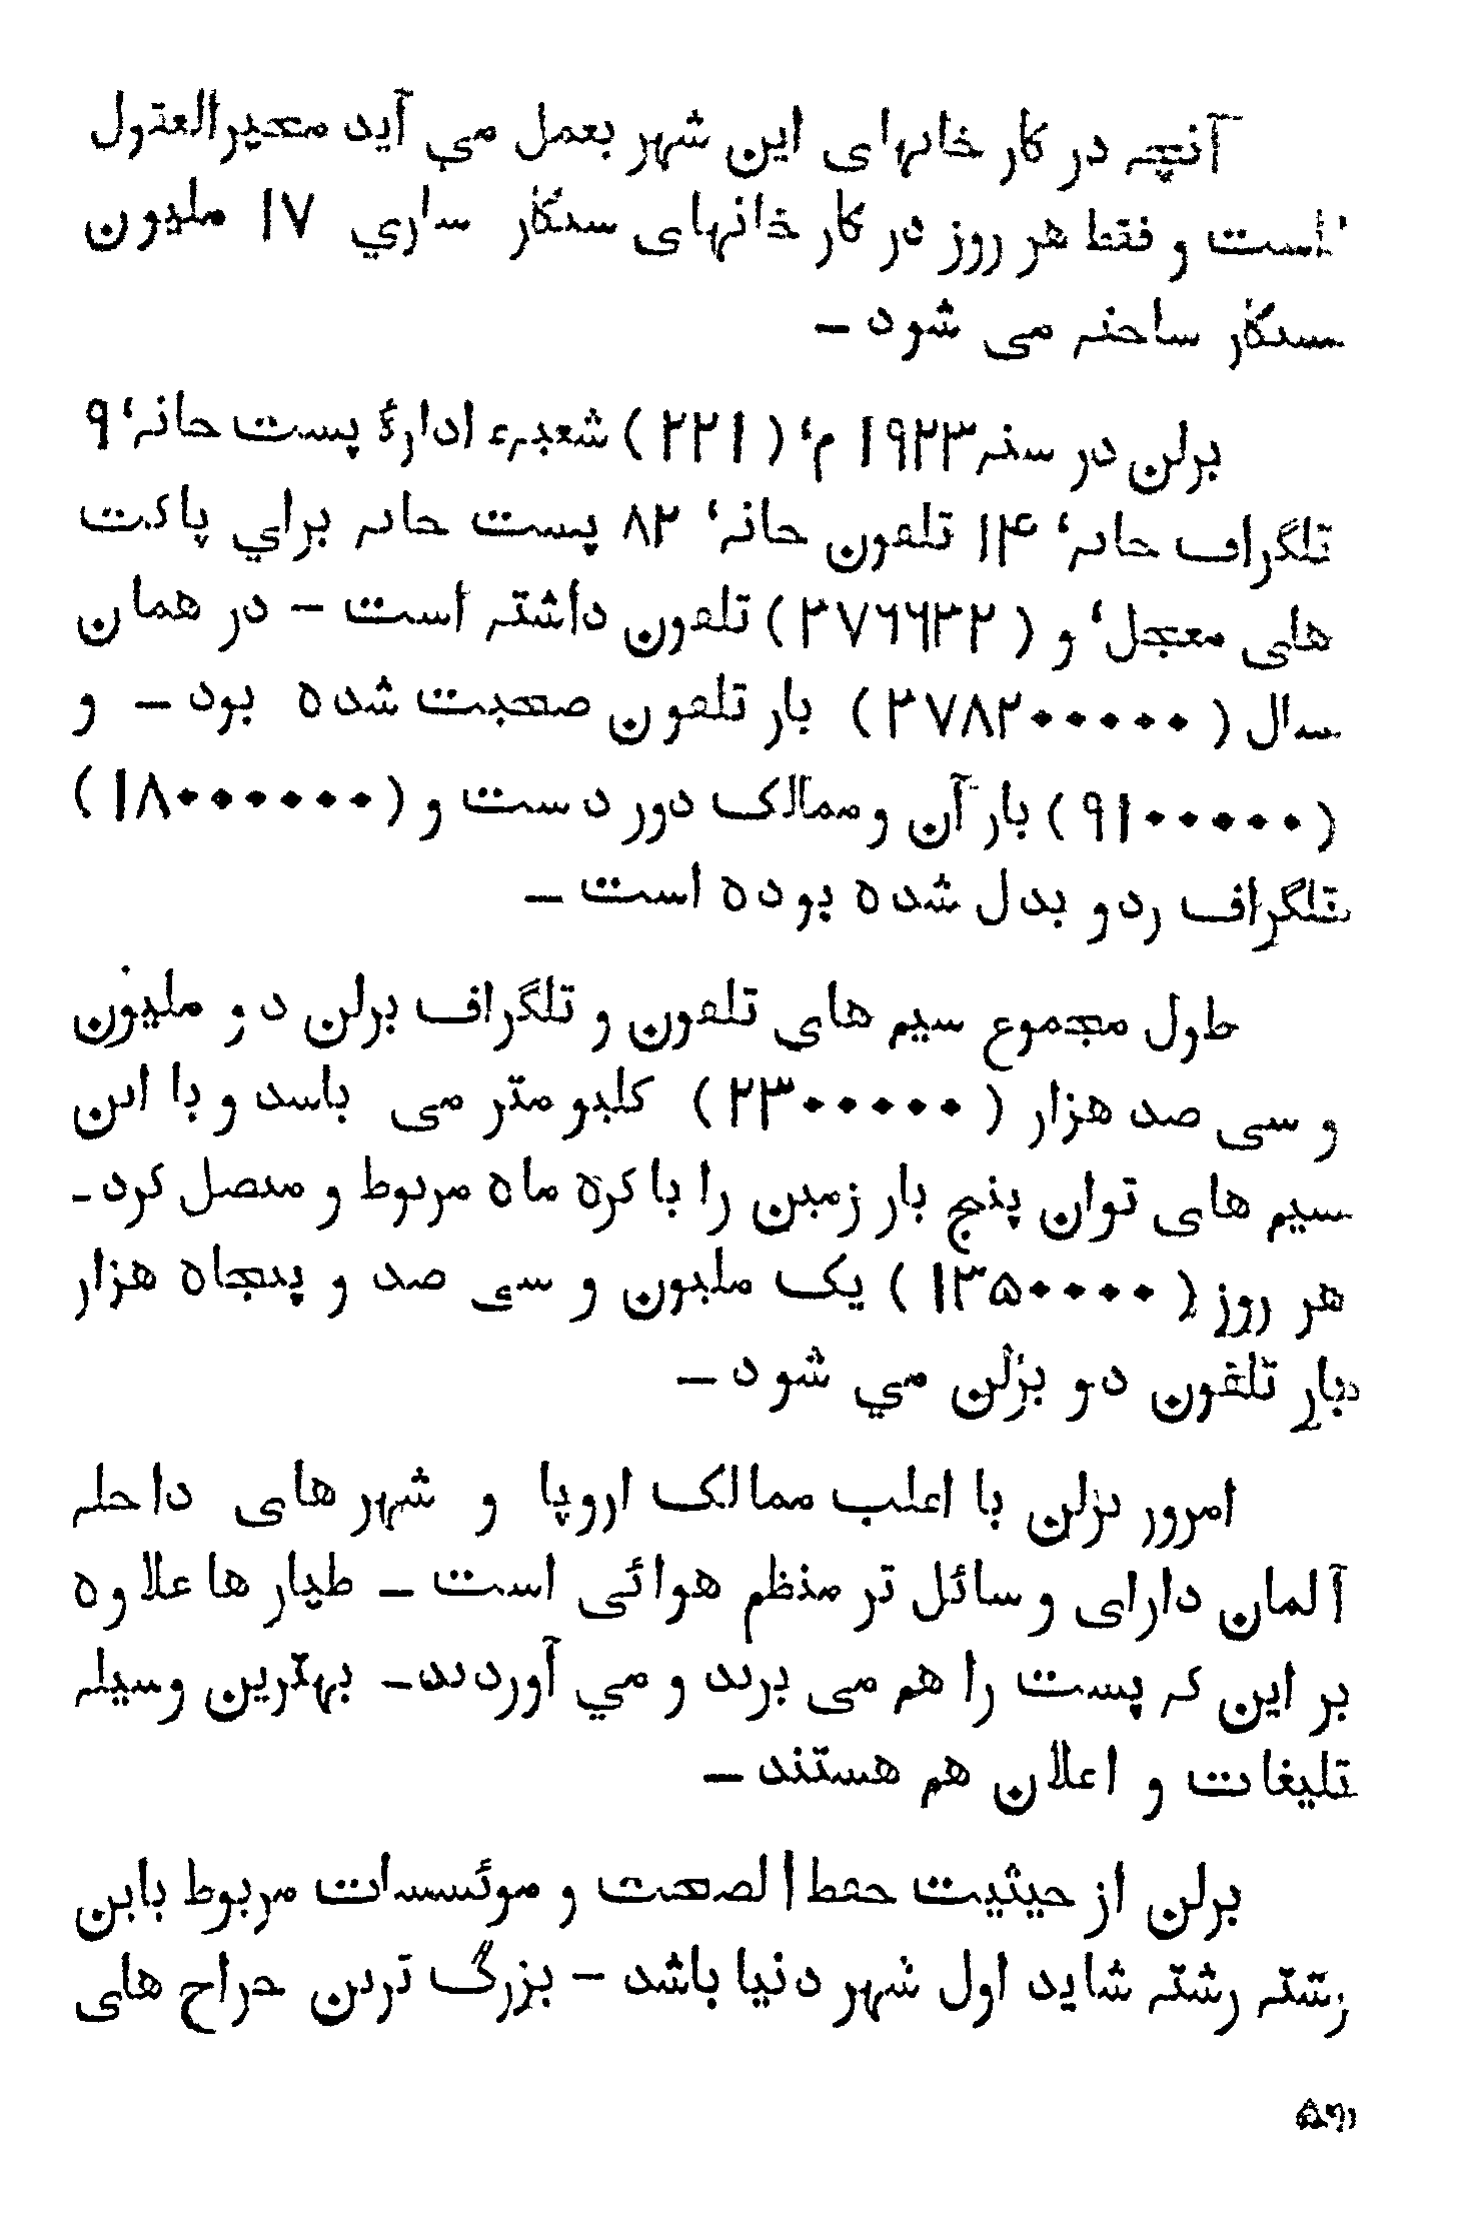 آنچه در کار خانهای این شهر بعمل می آید محیرالعقول
است و فقط هر روز در کار خانهای سگار ساری ۱۷ ملیون
سگار ساخته می شود ـ
برلن در سنه ۱۹۲۳ م‘ (۲۲۱) شعبهء ادارهٔ پست خانه‘ ۹
تلگراف خانه‘ ۱۴ تلفون خانه‘ ۸۲ پست خانه برای پاکت
های معجل‘ و (۲۷۶۶۳۲) تلفون داشته است ـ در همان
سال (۲۷۸۲۰۰۰۰۰) بار تلفون صحبت شده بود ـ و
(۹۱۰۰۰۰۰) بار آن و ممالک دور دست و (۱۸۰۰۰۰۰۰)
تلگراف ردو بدل شده بوده است ـ
طول مجموع سیم های تلفون و تلگراف برلن دو ملیون
و سی صد هزار (۲۳۰۰۰۰۰) کلیو متر می باشد و با این
سیم های توان پنج بار زمین را با کره ماه مربوط و متصل کرد ـ
هر روز (۱۳۵۰۰۰۰) یک ملیون و سی صد و پنجاه هزار
بار تلفون دو برلن می شود ـ
امروز برلن با اغلب ممالک اروپا و شهر های داخله
آلمان دارای وسائل تر منظم هوائی است ـ طیار ها علاوه
بر این که پست را هم می برند و می آوردند ـ بهترین وسیله
تلیغات و اعلان هم هستند ـ
برلن از حیثیت حفظ الصحت و موئسسات مربوط باین
رشته رشته شاید اول شهر دنیا باشد ـ بزرگ ترین جراح های